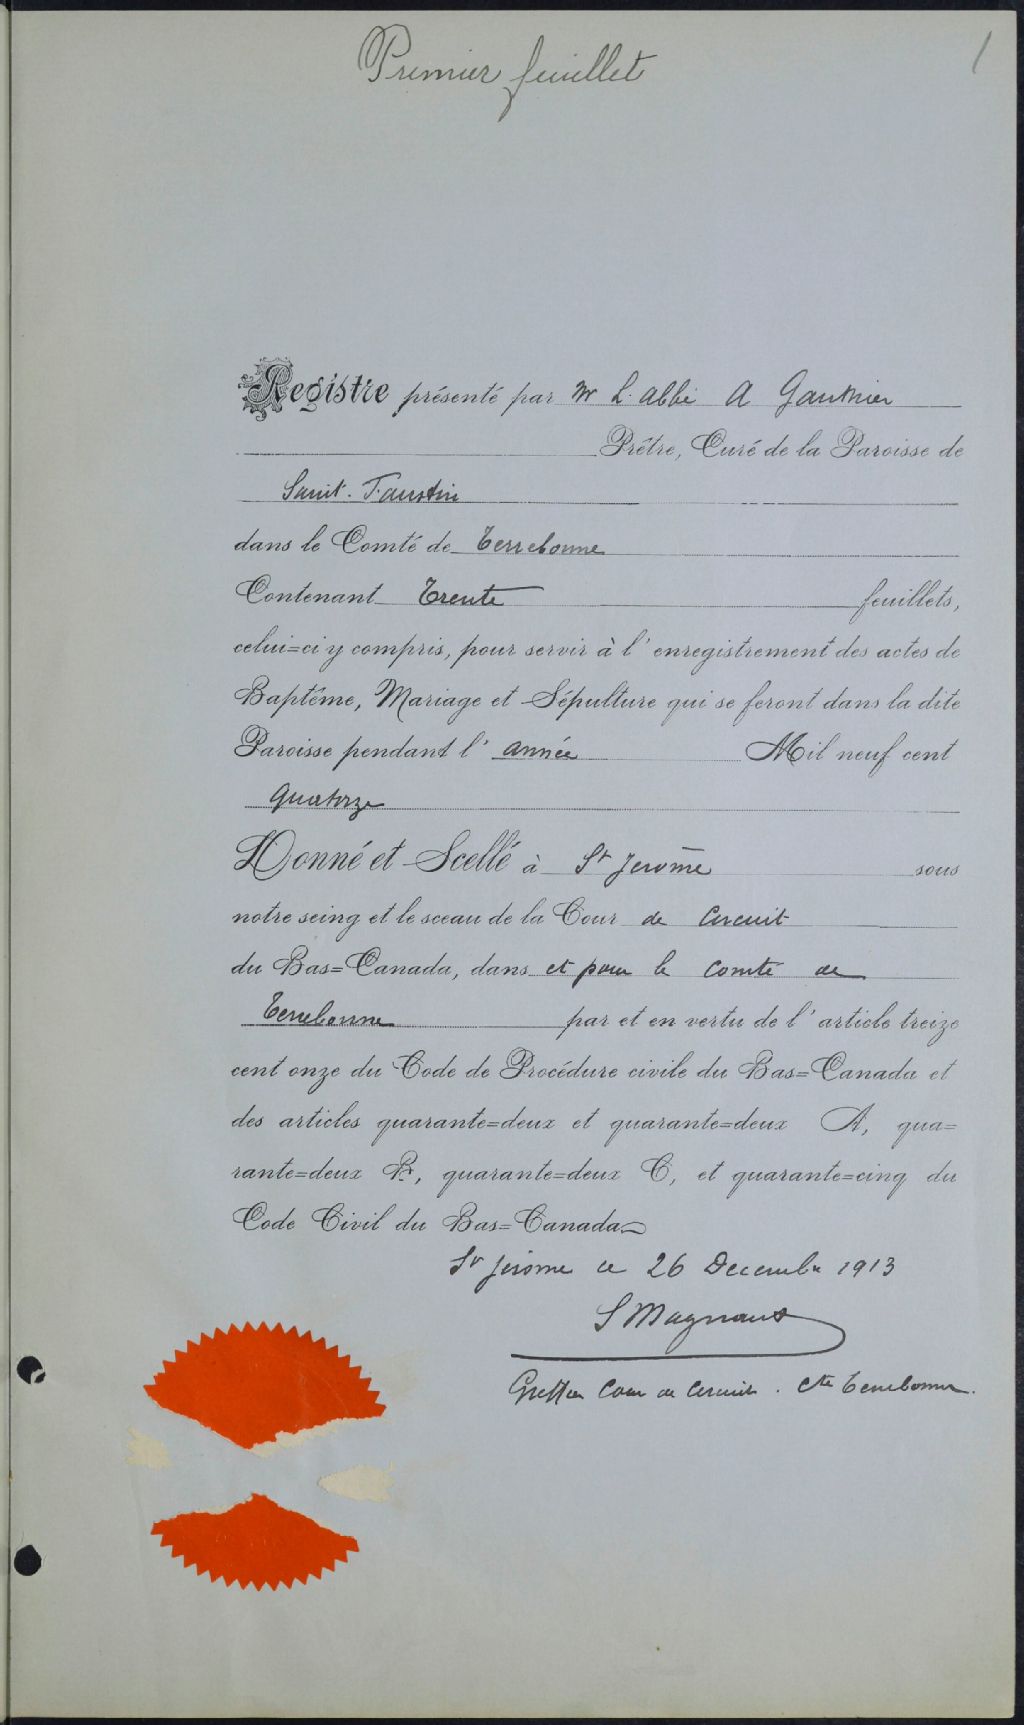 Premier feuillet
1
Registre présenté par Mr L'abbé A Gauthier
Prêtre, Curé de la Paroisse de
Saint-Faustin
dans le Comté de Terrebonne
Contenant Trente feuillets,
celui=ci y compris, pour servir à l'enregistrement des actes de
Baptême, Mariage et Sépulture qui se feront dans la dite
Paroisse pendant l'année Mil neuf cent
quatorze
Donné et Scellé à St Jerome sous
notre seing et le sceau de la Cour de Circuit
du Bas=Canada, dans et pour le comté de
Terrebonne par et en vertu de l'article treize
cent onze du Code de Procédure civile du Bas=Canada et
des articles quarante=deux et quarante=deux A, qua=
rante=deux B, quarante=deux C, et quarante=cinq du
Code Civil du Bas=Canada
St Jérome ce 26 Decembre 1913
Greffier Cour de Circuit. Cté Terrebonne.